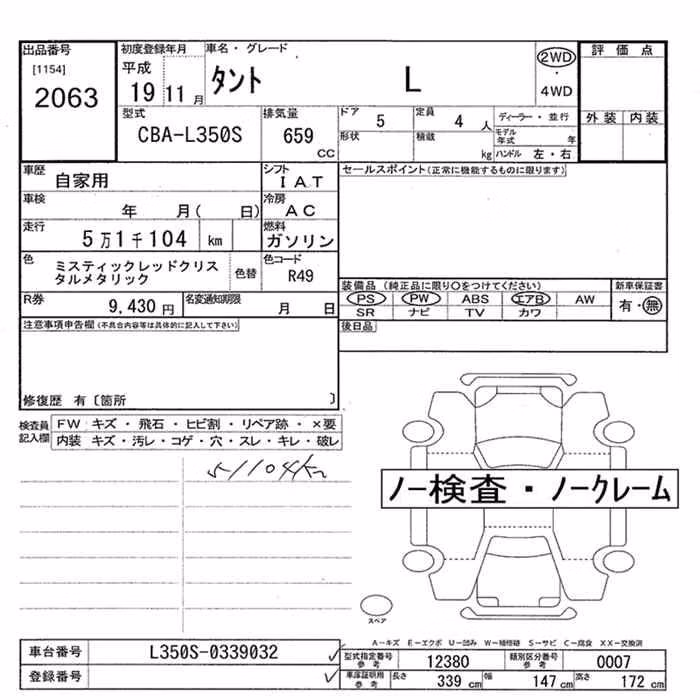 出品番号 初度登録年月 車名・グレード 2WD 評価点
[1154] 平成 タント L
2063 19 11月 4WD
型式 排気量 ドア 5 定員 4人 ディーラー・並行 外装 内装
CBA-L350S 659 cc 形状 積載 kg モデル年式 年
ハンドル 左・右
車歴 自家用 シフト IAT セールスポイント(正常に機能するものに限ります)
車検 年 月( 日) 冷房 AC
走行 5万1千104 km 燃料 ガソリン
色 ミスティックレッドクリスタルメタリック 色替 色コード R49
装備品(純正品に限り○をつけてください) 新車保証書
R券 9,430円 名変通知期限 月 日 PS PW ABS エアB AW 有・無
SR ナビ TV カワ
注意事項申告欄(不具合内容等は具体的に記入して下さい) 後日品
修復歴 有〔箇所 〕
検査員記入欄 FW キズ・飛石・ヒビ割・リペア跡・×要
内装 キズ・汚レ・コゲ・穴・スレ・キレ・破レ
51104km
ノー検査・ノークレーム
スペア
A-キズ E-エクボ U-凹み W-補修跡 S-サビ C-腐食 XX-交換済
車台番号 L350S-0339032 型式指定番号 参考 12380 類別区分番号 参考 0007
登録番号 車庫証明用 参考 長さ 339 cm 幅 147 cm 高さ 172 cm